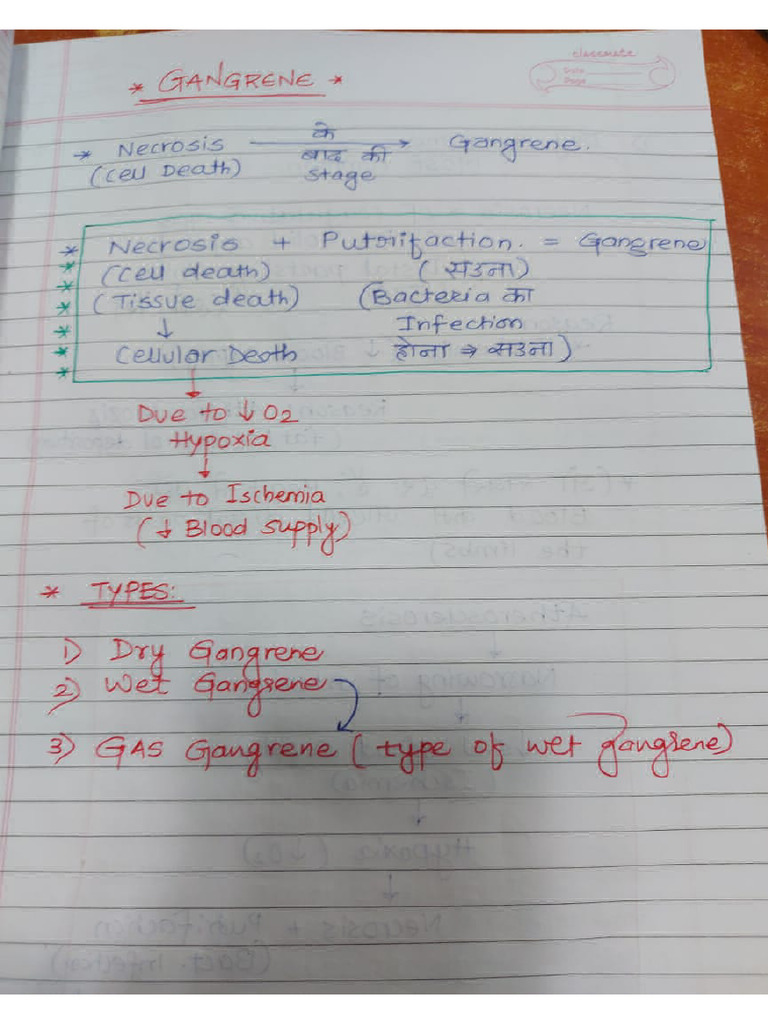 classmate
Date
Page
* GANGRENE *
* Necrosis के बाद की stage Gangrene.
(Cell Death)
Necrosis + Putorifaction. = Gangrene
(Cell death) (सडना)
(Tissue death) (Bacteria का
↓ Infection
Cellular Death होना ⇒ सडना)
↓
Due to ↓ O2
Hypoxia
↓
Due to Ischemia
(↓ Blood supply)
* TYPES:
1) Dry Gangrene
2) Wet Gangrene
3) GAS Gangrene (type of wet gangrene)